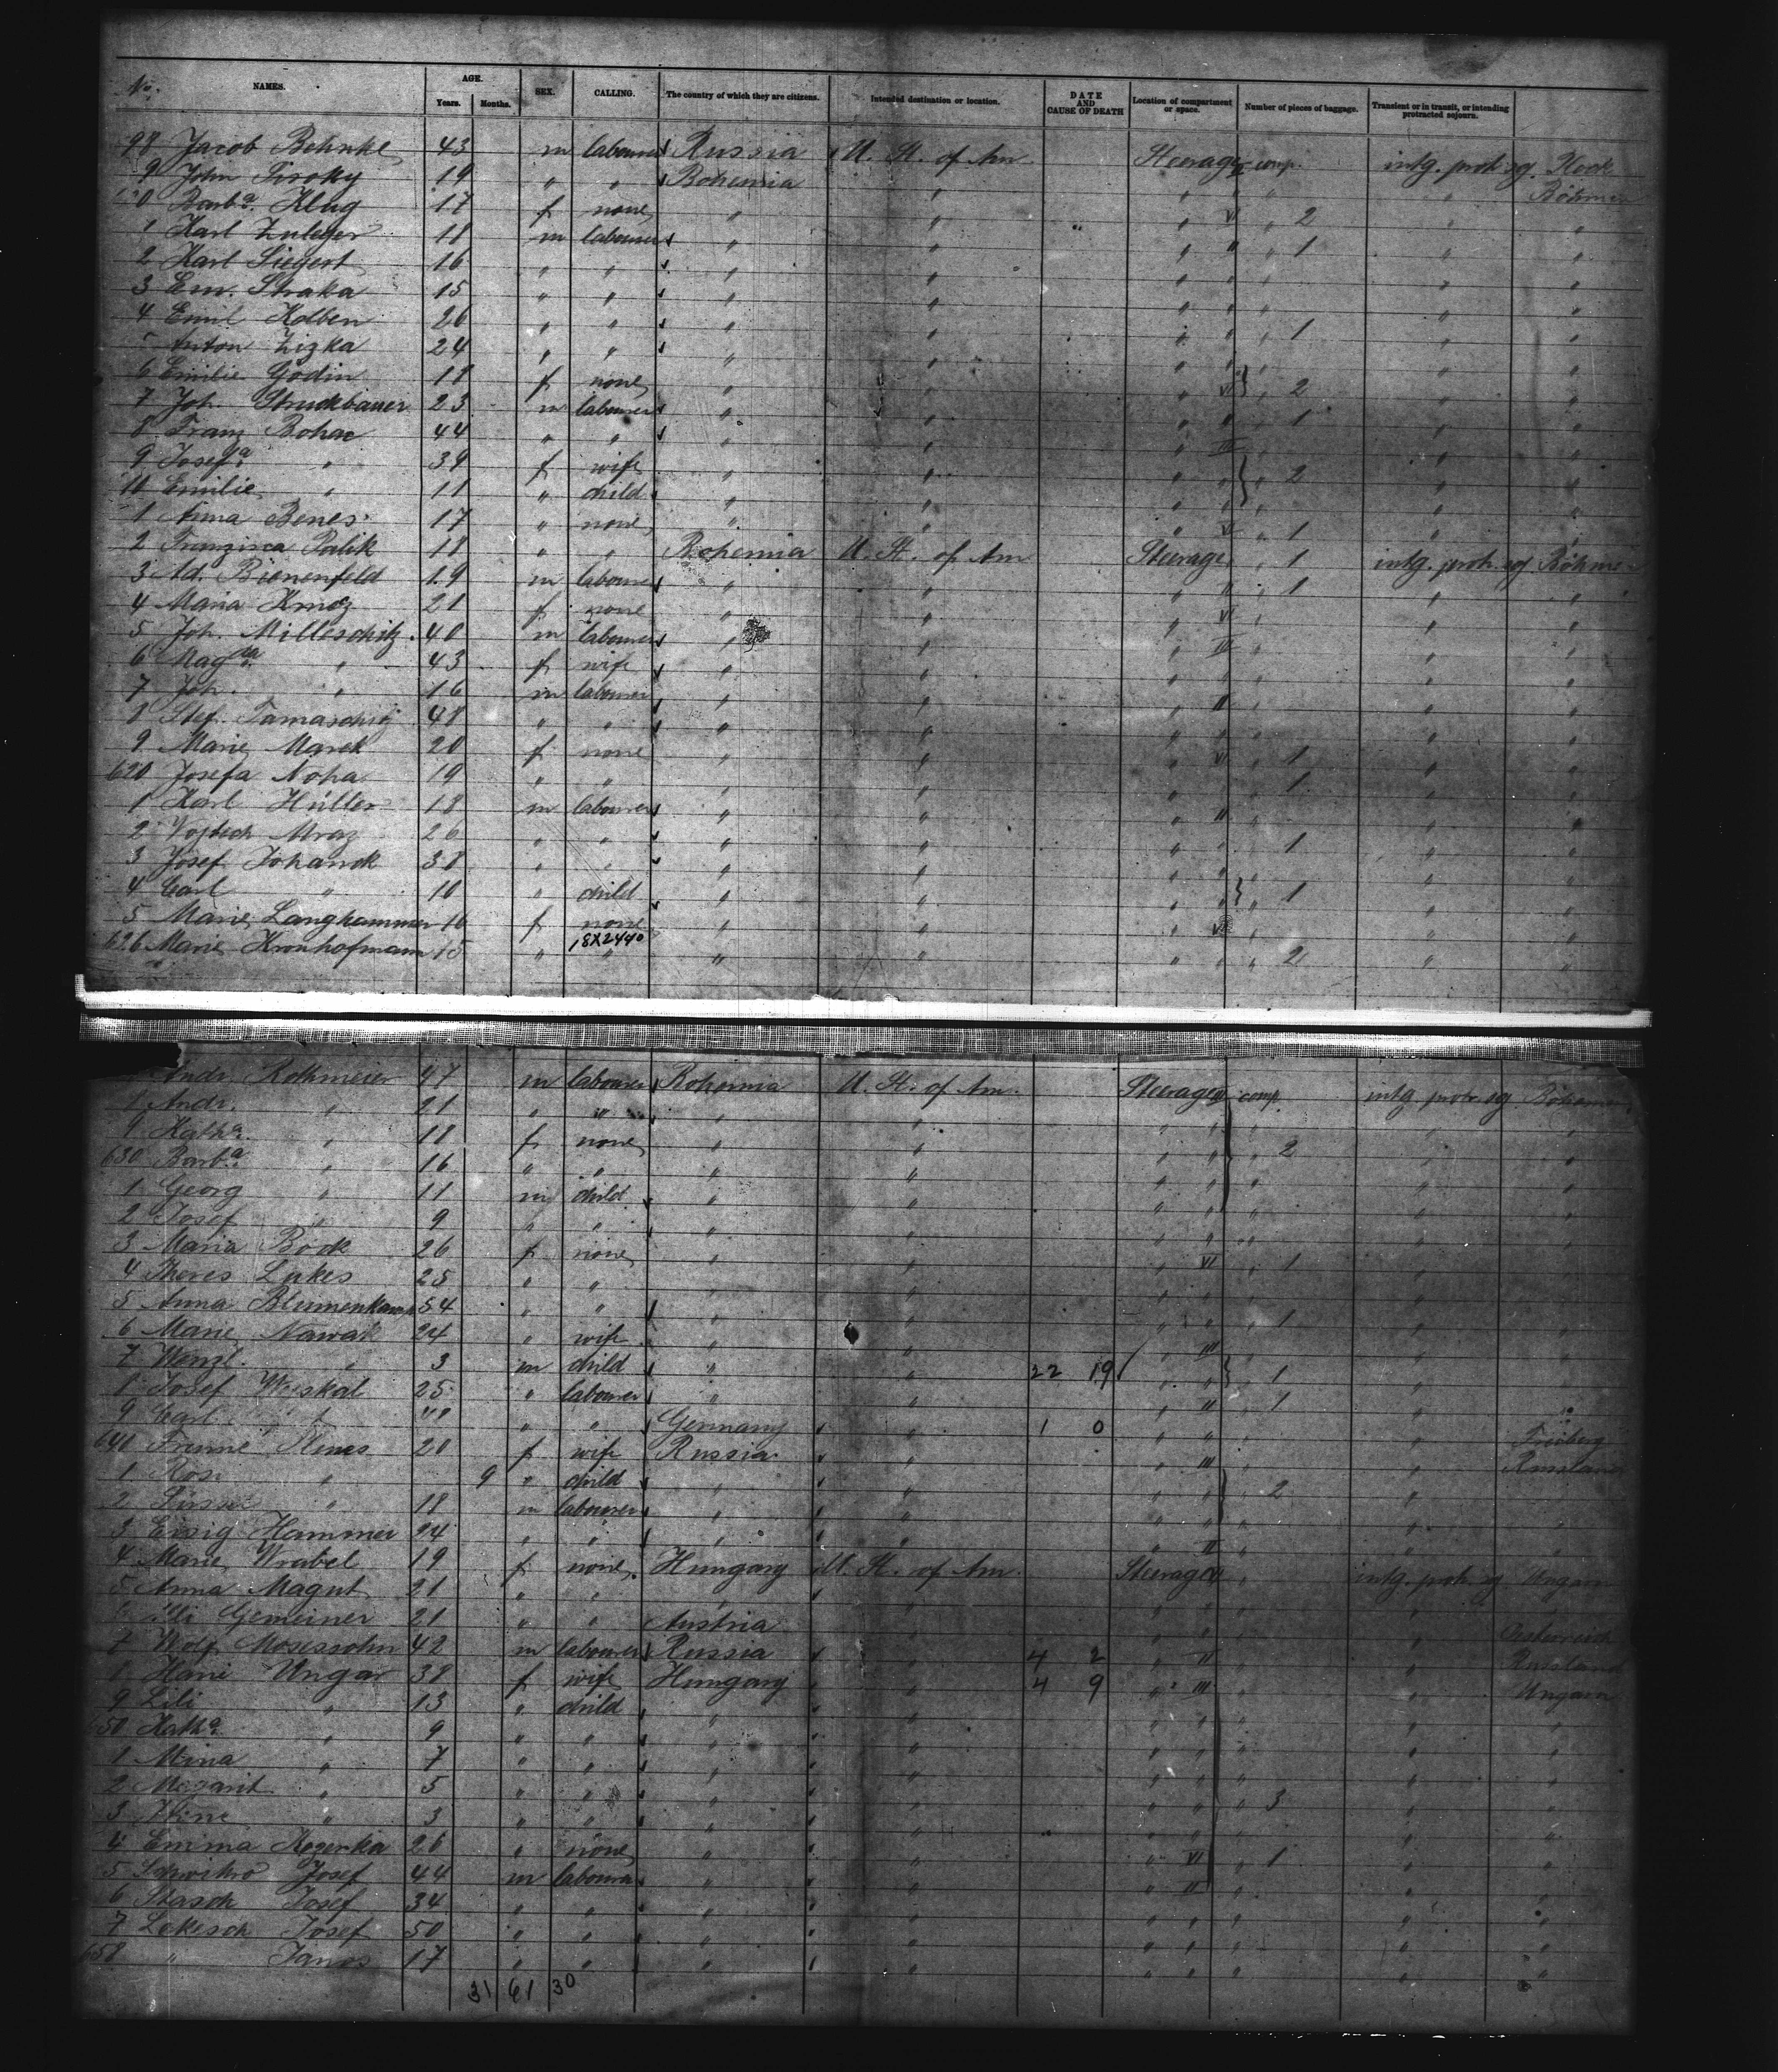 No. NAMES. AGE. Years. Months. SEX. CALLING. The country of which they are citizens. Intended destination or location. DATE AND CAUSE OF DEATH Location of compartment or space. Number of pieces of baggage. Transient or in transit, or intending protracted sojourn.
98 Jacob Behnke 43 m labourer Russia U. St. of Am. Steerage comp. intg. protr. sg.
9 John 19 " " Bohemia " " " " Böhmen
0 Barba. Klug 17 f none " " " VI " 2 " "
1 Karl Zuleger 18 m labourer " " " II " 1 " "
2 Karl Siegert 16 " " " " " " " " "
3 Em. Straka 15 " " " " " " " " "
4 Emil Kolben 26 " " " " " " " 1 " "
5 Anton Zizka 24 " " " " " " " " "
6 Emilie Godin 18 f none " " " VI " 2 " "
7 Joh. Struckbauer 23 m labourer " " " " " 1 " "
8 Franz Bohac 44 " " " " " III " "
9 Josefa " 39 f wife " " " " " 2 " "
10 Emilie " 11 " child " " " " " " "
1 Anna Benes 17 " none " " " VI " 1 " "
2 Franzisca Palik 18 " " Bohemia U. St. of Am Steerage " 1 intg. protr. sg. Böhmen
3 Ad. Bienenfeld 19 m labourer " " " II " 1 " "
4 Maria 21 f none " " " VI " " "
5 Joh. Milleschitz 40 m labourer " " " III " " "
6 Magda. " 43 f wife " " " " " "
7 Joh. " 16 m labourer " " " II " "
8 Stef. Tamaschitz 48 " " " " " " " "
9 Marie Marek 20 f none " " " VI " 1 " "
620 Josefa Noha 19 " " " " " " " 1 " "
1 Karl Hüller 18 m labourer " " " II " "
2 Vojtech Mraz 26 " " " " " " 1 " "
3 Josef Johanek 38 " " " " " " " "
4 Carl " 10 " child " " " " " 1 " "
5 Marie Langhammer 16 f none " " " VI " " "
626 Marie Kronhofmann 15 " 18X2440 " " " " " " 2 " "
Andr. Rothmeier 47 m labourer Bohemia U. St. of Am. Steerage comp. intg. protr. sg Böhmen
Andr. " 21 " " " " " " " "
9 Katha. " 18 f none " " " " " 2 " "
630 Barba. " 16 " " " " " " " " "
1 Georg " 11 m child " " " " " " "
2 Josef " 9 " " " " " " " " "
3 Maria Bock 26 f none " " " VI " 1 " "
4 Theres Lukes 25 " " " " " " " " "
5 Anna Blumenkamp 54 " " " " " " " 1 " "
6 Marie Nawak 24 " wife " " " III " "
7 Wenzl. " 3 m child " " 22 19 " " " 1 " "
8 Josef 25 " labourer " " " II " 1 " "
9 Carl " " Germany " 1 0 " " "
640 20 f wife Russia " " III " Russland
1 Rosi " 9 " child " " " " " 2 " "
2 " 18 m labourer " " " " " " "
3 Eisig Hammer 24 " " " " " II " " "
4 Marie Wrabel 19 f none Hungary U. St. of Am. Steerage VI " intg. protr. sg Ungarn
5 Anna Magut 21 " " " " " " " " "
Gemeiner 21 " " Austria " " " " " Oesterreich
7 Wolf Mosessohn 42 m labourer Russia " 4 2 " II " " Russland
8 Hani Ungar 38 f wife Hungary " 4 9 " III " " Ungarn
9 Lili " 13 " child " " " " " " "
650 Katha. " 9 " " " " " " " " "
1 Mina " 7 " " " " " " " " "
2 Margarit " 5 " " " " " " " 3 " "
3 " 3 " " " " " " " " "
4 Emma 26 " none " " " VI " 1 " "
5 Josef 44 m labourer " " " II " " "
6 Stasch Josef 34 " " " " " " " " "
7 Lekesch Josef 50 " " " " " " " " "
658 " Janos 17 " " " " " " " " "
31 61 30